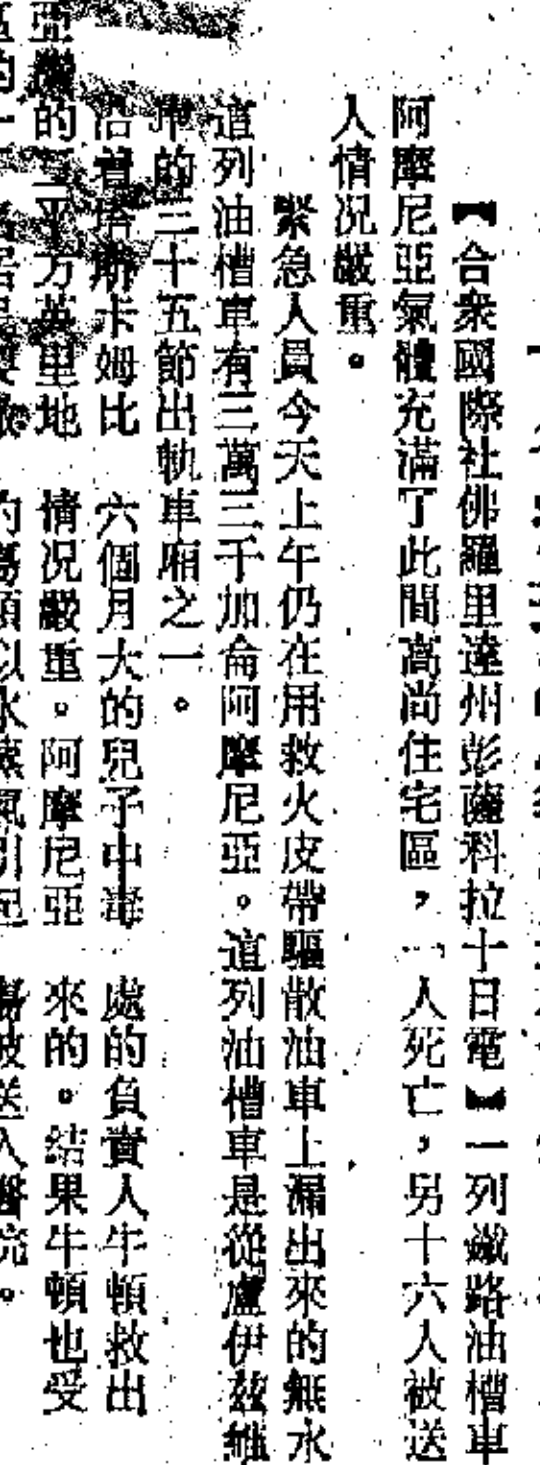 【合衆國際社佛羅里達州彭薩科拉十日電】一列鐵路油槽車
阿摩尼亞氣體充滿了此間高尚住宅區，一人死亡，另十六人被送
人情况嚴重。
緊急人員今天上午仍在用救火皮帶驅散油車上漏出來的無水
道列油槽車有三萬三千加侖阿摩尼亞。這列油槽車是從盧伊茲維
的三十五節出軌車廂之一。
沿着塔斯卡姆比
的二平方英里地
六個月大的兒子中毒
情况嚴重。阿摩尼亞
的傷類似水蒸氣引起
處的負責人牛頓救出
來的。結果牛頓也受
傷被送入醫院。